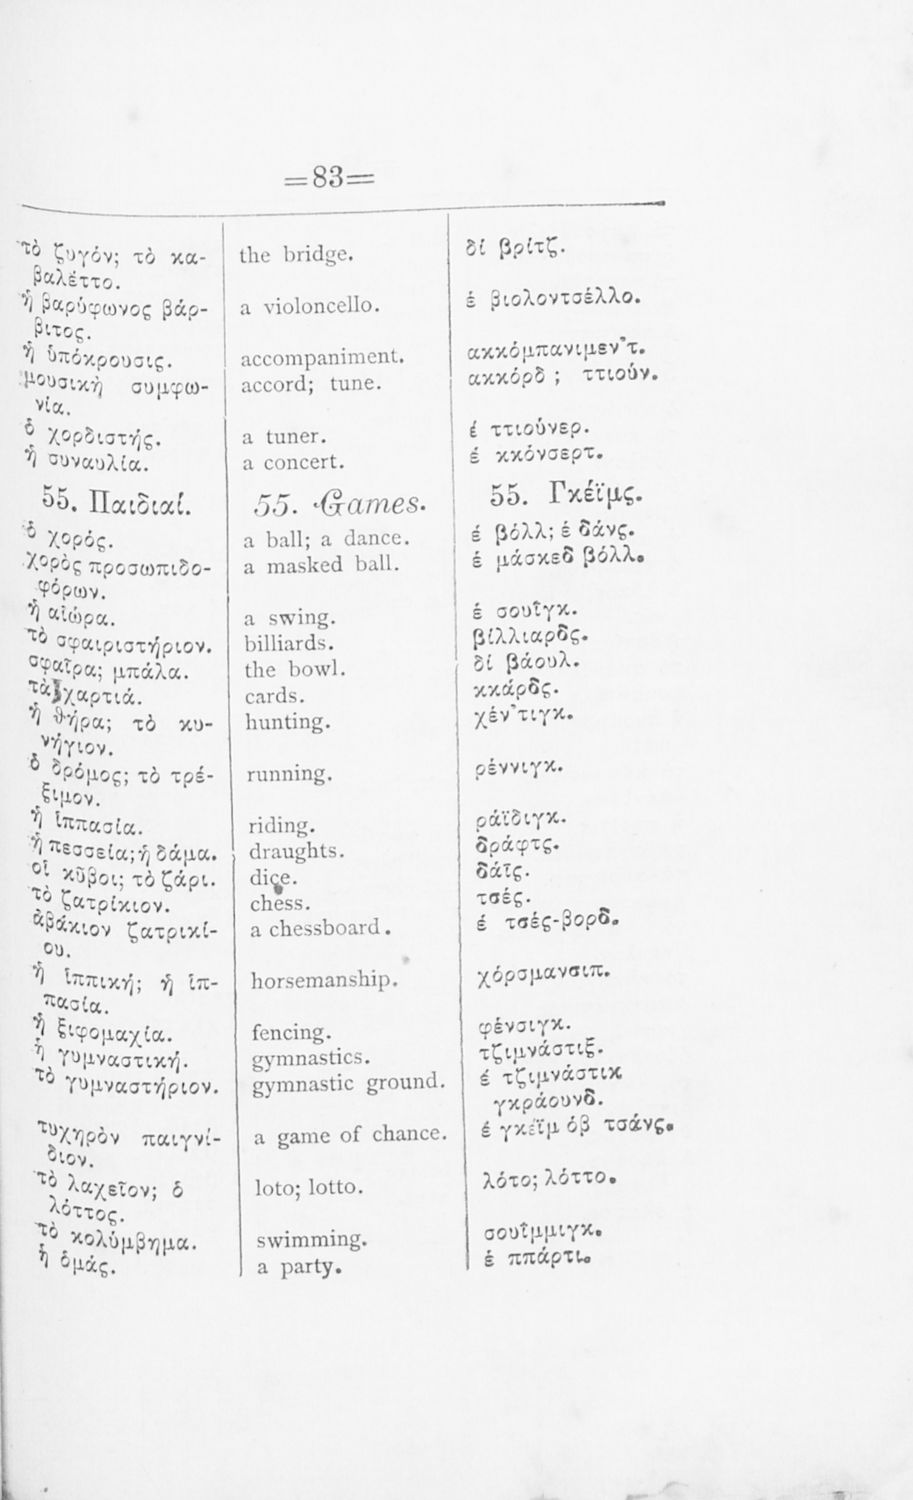 =83=
τὸ ζυγόν; τὸ κα- the bridge. δί βρίτζ.
βαλέττο.
ἡ βαρύφωνος βάρ- a violoncello. ἐ βιολοντσέλλο.
βιτος.
ἡ ὑπόκρουσις. accompaniment. ακκόμπανιμεν’τ.
μουσικὴ συμφω- accord; tune. ακκόρδ ; ττιούν.
νία.
ὁ χορδιστής. a tuner. ἐ ττιούνερ.
ἡ συναυλία. a concert. ἐ κκόνσερτ.
55. Παιδιαί. 55. Games. 55. Γκέϊμς.
ὁ χορός. a ball; a dance. ἐ βόλλ; ἐ δάνς.
χορὸς προσωπιδο- a masked ball. ἐ μάσκεδ βόλλ.
φόρων.
ἡ αἰώρα. a swing. ἐ σουΐγκ.
τὸ σφαιριστήριον. billiards. βίλλιαρδς.
σφαῖρα; μπάλα. the bowl. δί βάουλ.
τὰ χαρτιά. cards. κκάρδς.
ἡ θήρα; τὸ κυ- hunting. χέν’τιγκ.
νήγιον.
ὁ δρόμος; τὸ τρέ- running. ρέννιγκ.
ξιμον.
ἡ ἱππασία. riding. ράϊδιγκ.
ἡ πεσσεία; ἡ δάμα. draughts. δράφτς.
οἱ κῦβοι; τὸ ζάρι. dice. δάΐς.
τὸ ζατρίκιον. chess. τσές.
ἀβάκιον ζατρικί- a chessboard. ἐ τσές-βορδ.
ου.
ἡ ἱππική; ἡ ἱπ- horsemanship. χόρσμανσιπ.
πασία.
ἡ ξιφομαχία. fencing. φένσιγκ.
ἡ γυμναστική. gymnastics. τζιμνάστιξ.
τὸ γυμναστήριον. gymnastic ground. ἐ τζιμνάστικ
γκράουνδ.
τυχηρὸν παιγνί- a game of chance. ἐ γκέϊμ ὀβ τσάνς.
διον.
τὸ λαχεῖον; ὁ loto; lotto. λότο; λόττο.
λόττος.
τὸ κολύμβημα. swimming. σουΐμμιγκ.
ἡ ὁμάς. a party. ἐ ππάρτι.